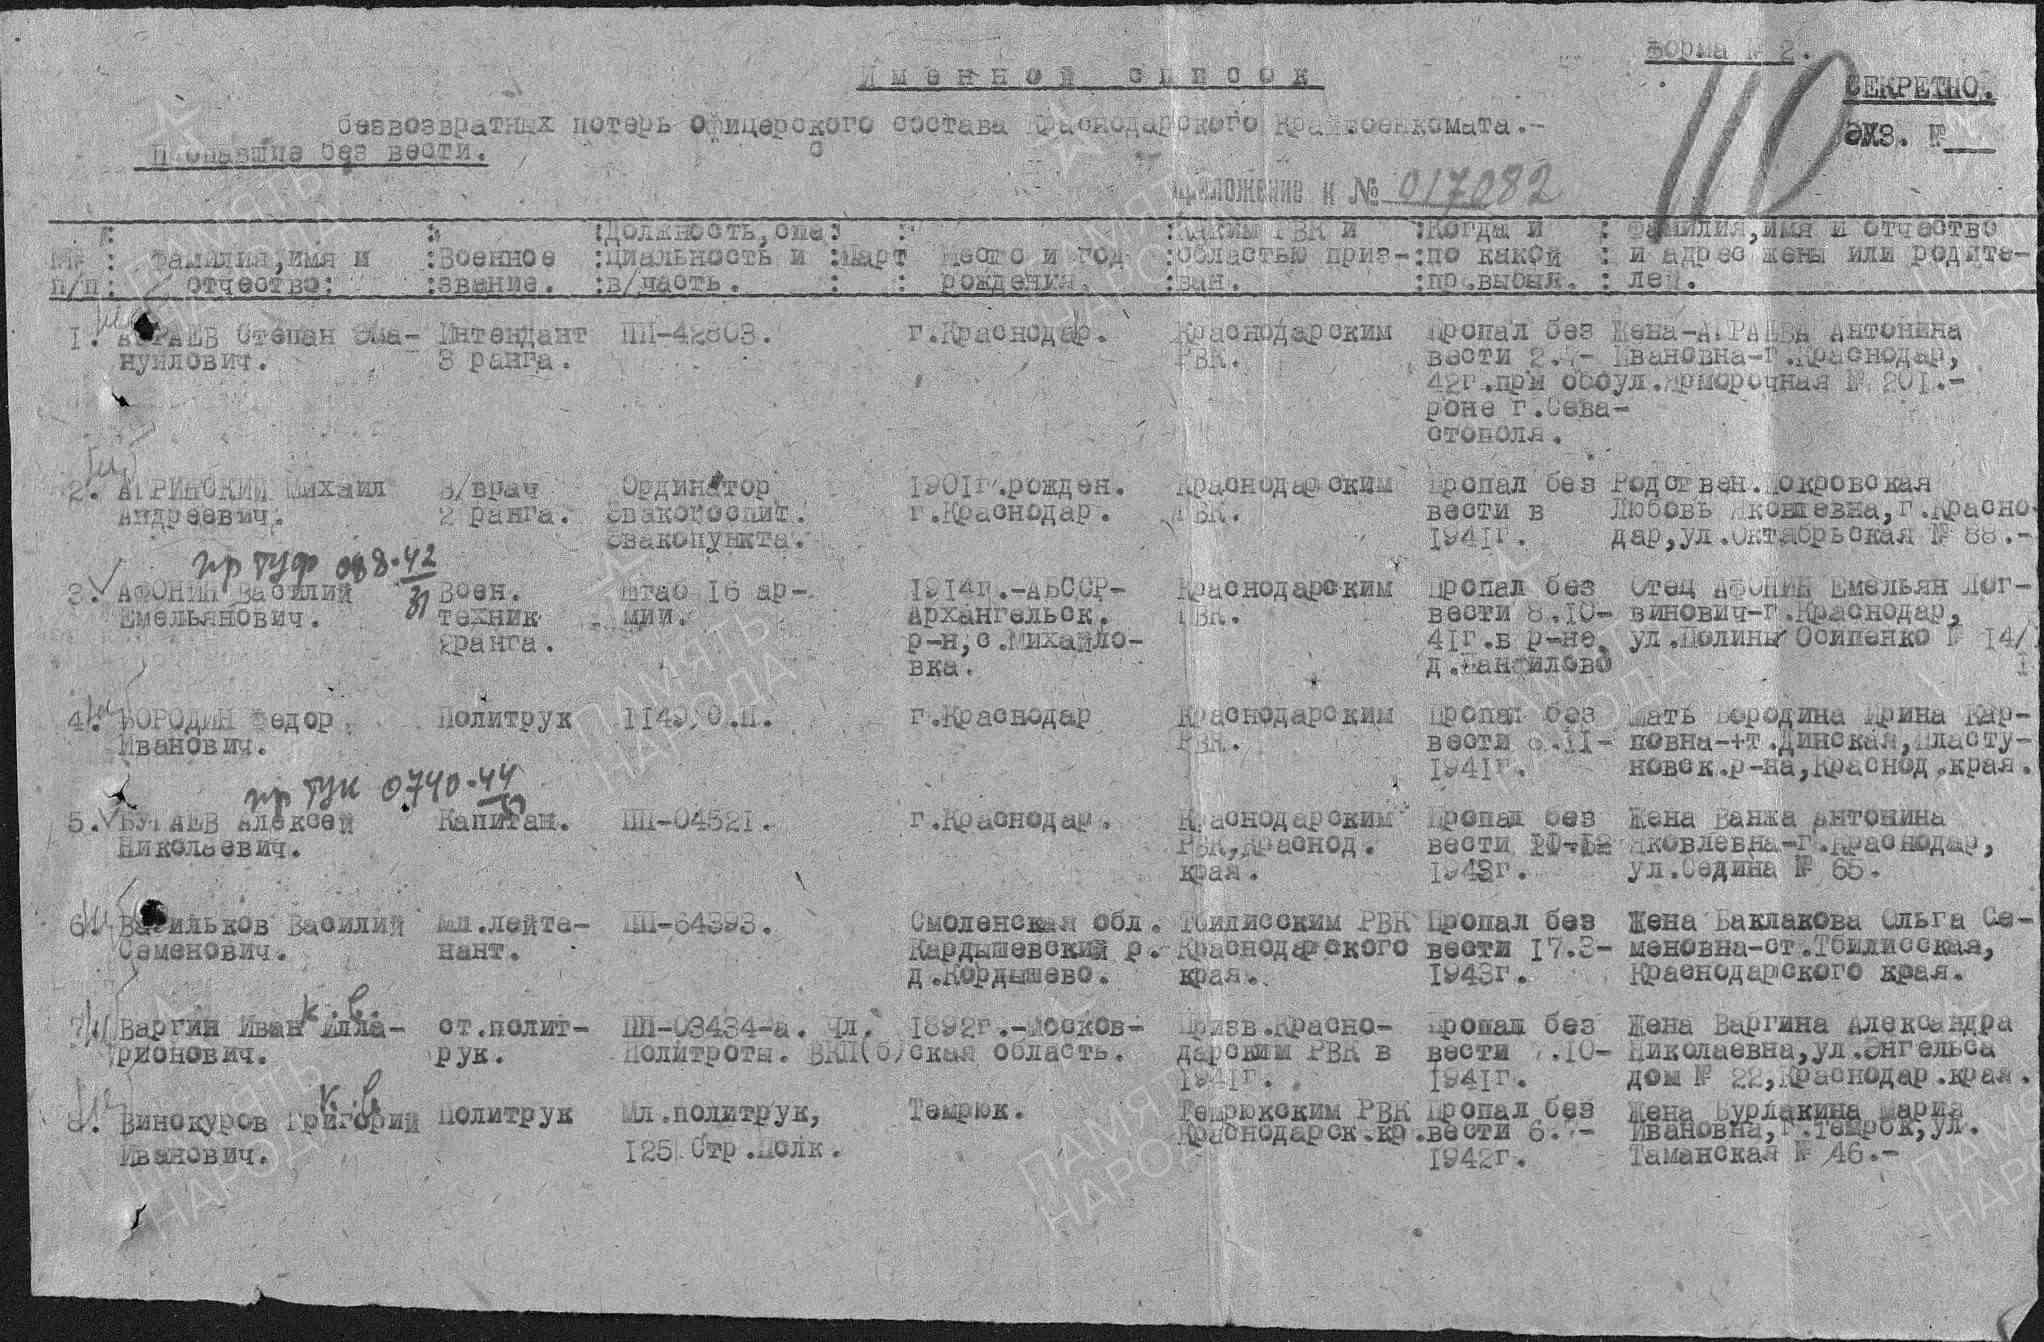 Форма № 2.
Именной список
СЕКРЕТНО.
Экз. №
безвозвратных потерь офицерского состава Краснодарского Крайвоенкомата.-
Пропавшие без вести.
Приложение к № 017082
110
№№ п/п : Фамилия, имя и отчество: : Военное звание. : Должность, спе-циальность и в/часть. : Парт : Место и год рождения. : Каким РВК и областью приз-ван. : Когда и по какой пр.выбыл. : Фамилия, имя и отчество и адрес жены или родите-лей.
1. Степан Эма- Интендант ПП-42803. г.Краснодар. Краснодарским Пропал без Жена- Антонина
нуилович. 3 ранга. РВК. вести Ивановна-г.Краснодар,
42г.при обо ул.Ярморочная № 201.-
роне г.Сева-
стополя.
2. АГРИНСКИЙ Михаил В/врач Ординатор 1901г.рожден. Краснодарским Пропал без Родствен.Покровская
Андреевич. 2 ранга. Эвакогоспит. г.Краснодар. РВК. вести в Любовь Яковлевна,г.Красно-
Эвакопункта. 1941г. дар,ул.Октябрьская № 88.-
пр ГУФ 088-42
31
3. АФОНИН Василий Воен. Штаб 16 ар- 1914г.-АБССР- Краснодарским Пропал без Отец АФОНИН Емельян Лог-
Емельянович. техник мии. Архангельск. РВК. вести 8.10- винович-г.Краснодар,
2ранга. р-н,с.Михайло- 41г.в р-не ул.Полины Осипенко № 14/
вка. д.Панфилово 1
4. БОРОДИН Федор Политрук 1149 О.П. г.Краснодар Краснодарским Пропал без Мать Бородина Ирина Кар-
Иванович. РВК. вести повна-ст.Динская,Пласту-
1941г. новск.р-на,Краснод.края.
пр ГУК 0740-44
5. БУГАЕВ Алексей Капитан. ПП-04521. г.Краснодар. Краснодарским Пропал без Жена Ванжа Антонина
Николаевич. РВК,Краснод. вести Яковлевна-г.Краснодар,
края. 1943г. ул.Седина № 65.
6. Васильков Василий Мл.лейте- ПП-64393. Смоленская обл. Тбилисским РВК Пропал без Жена Баклакова Ольга Се-
Семенович. нант. Кардышевский р. Краснодарского вести 17.3- меновна-ст.Тбилисская,
д.Кордышево. края. 1943г. Краснодарского края.
к.в.
7. Варгин Иван Илла- ст.полит- ПП-03434-а. Чл. 1892г.-Москов- Призв.Красно- Пропал без Жена Варгина Александра
рионович. рук. Политроты. ВКП(б) ская область. дарским РВК в вести .10- Николаевна,ул.Энгельса
1941г. 1941г. дом № 22,Краснодар.края.
к.в.
8. Винокуров Григорий Политрук Мл.политрук, Темрюк. Темрюкским РВК Пропал без Жена Бурлакина Мария
Краснодарск.кр. вести 6. - Ивановна,г.Темрюк,ул.
Иванович. 125 Стр.Полк. 1942г. Таманская № 46.-
ПАМЯТЬ
НАРОДА